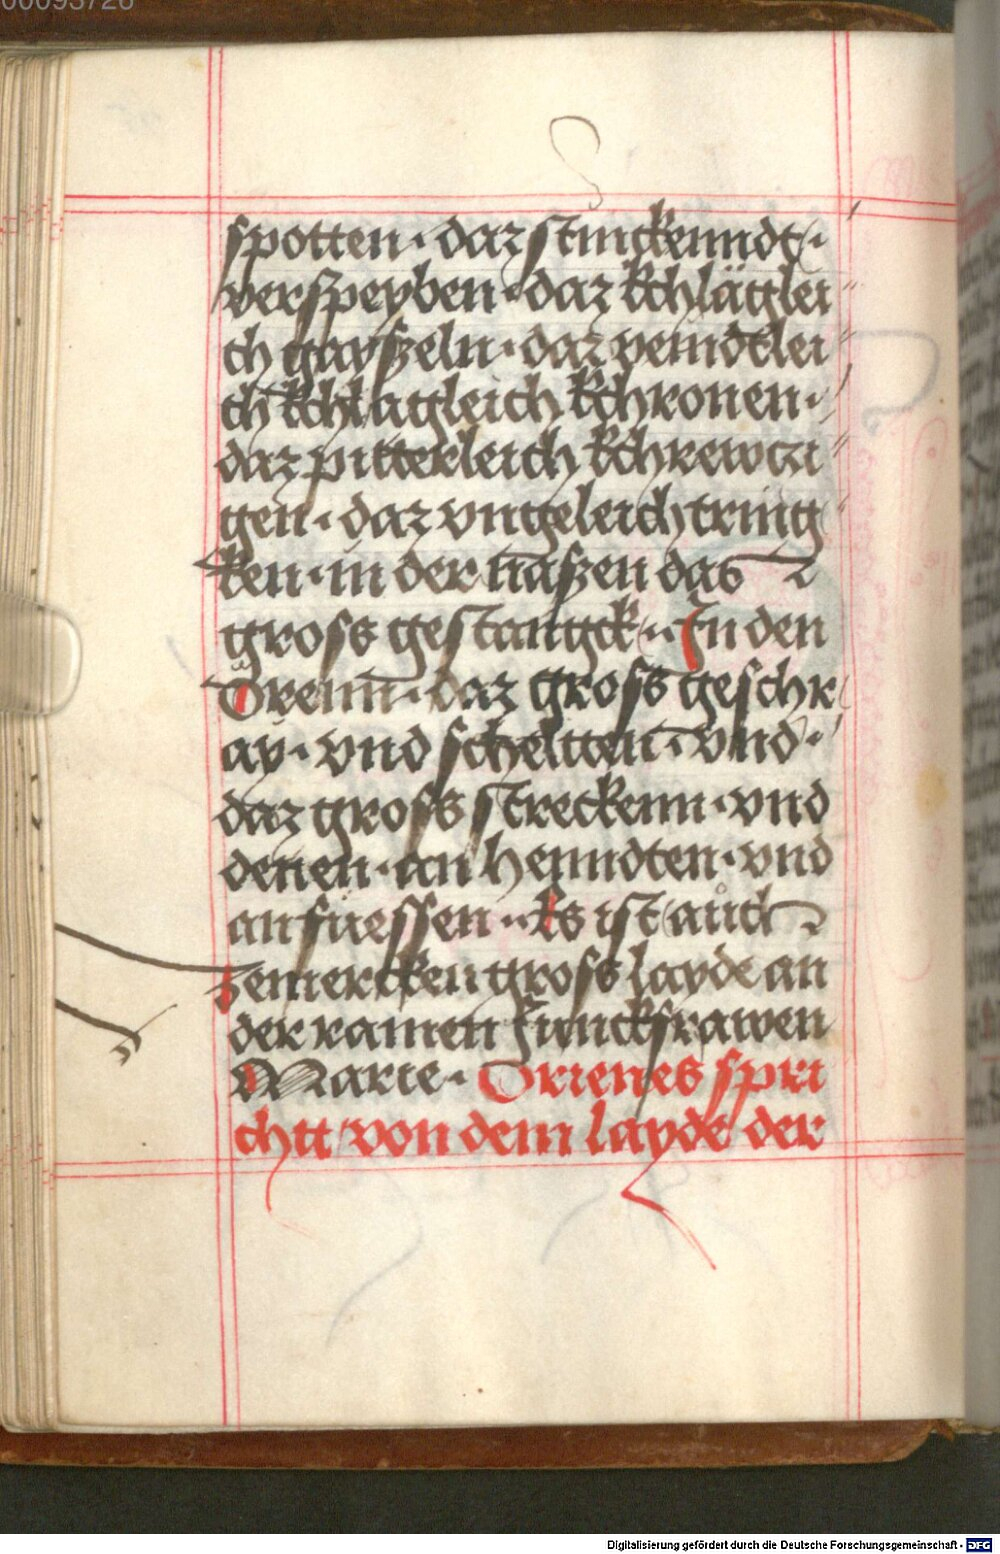 00093726
spotten · daz stinckenndt ·
verspeyben · daz kchläglei
ch gayszeln · daz veindtlei
ch kchlagleich kchronen ·
daz pitterleich kchrewczi
gen · daz vngeleich tring
ken · in der naszen das
gross gestangck ·· In den
Orenn · daz gross geschr
ay · vnd scheltten · vnd ·
daz gross streckenn · vnd
denen · an henndten · vnd
an fuessen ·· Es ist auch
zemercken gross layde an
der rainen Junckfrawen
Marie · Orienes spri
chtt von dem layde der
Digitalisierung gefördert durch die Deutsche Forschungsgemeinschaft - DFG